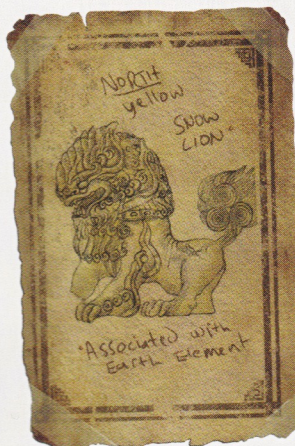 NORTH
yellow
SNOW
LION
Associated with
Earth Element